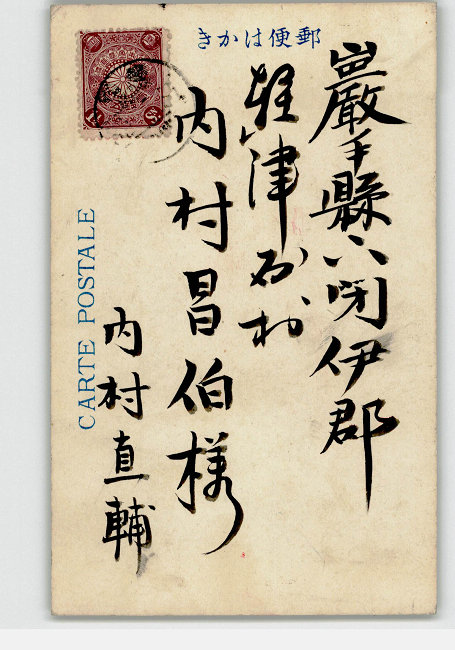 郵便はかき
巖手縣下閉伊郡
軽津石村
内村昌伯様
内村直輔
CARTE POSTALE